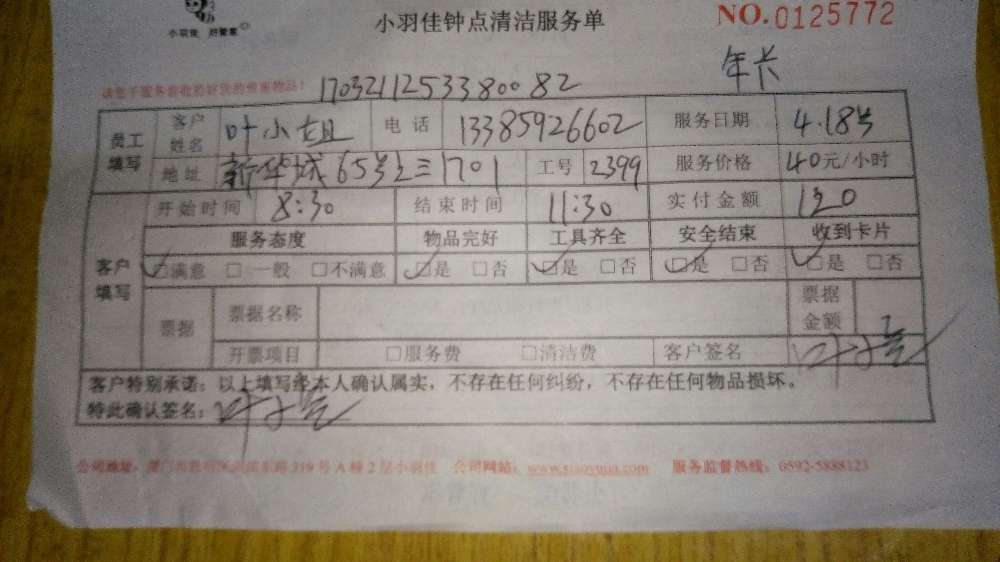 小羽佳 好管家
小羽佳钟点清洁服务单
NO.0125772
年长
请您于服务前收拾好您的贵重物品!
17032112533800082
员工填写 客户姓名 叶小姐 电话 13385926602 服务日期 4.18号
地址 新华城65号之三1701 工号 2399 服务价格 40元/小时
客户填写 开始时间 8:30 结束时间 11:30 实付金额 120
服务态度 物品完好 工具齐全 安全结束 收到卡片
☑满意 □一般 □不满意 ☑是 □否 ☑是 □否 ☑是 □否 ☑是 □否
票据 票据名称 票据金额
开票项目 □服务费 □清洁费 客户签名
客户特别承诺:以上填写经本人确认属实,不存在任何纠纷,不存在任何物品损坏。
特此确认签名:
公司地址:厦门市思明区湖滨东路319号A幢2层小羽佳 公司网站:www.xiaoyujia.com 服务监督热线:0592-5888123